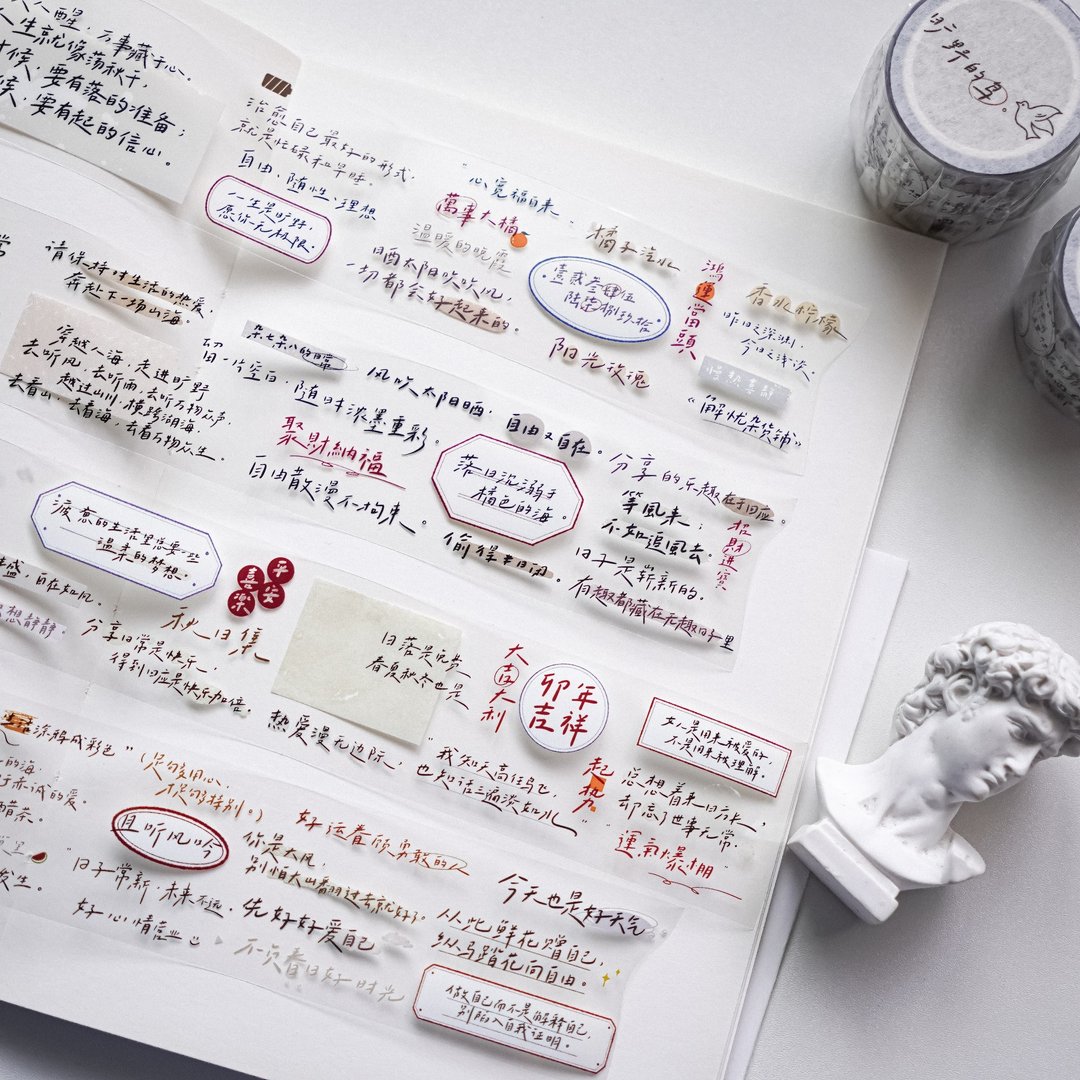 醒,万事藏于心。
人生就像荡秋千,
时候,要有落的准备;
候,要有起的信心。
治愈自己最好的形式,
就是忙碌和早睡。
自由、随性、理想
一生是旷野,
愿你无极限。
"心宽福自来.
萬事大橘
温暖的晚霞
晒太阳吹吹风,
一切都会好起来的。
橘子汽水
壹贰叁肆伍
陆柒捌玖拾
阳光玫瑰
鴻運當頭
香水柠檬
昨日之深渊,
今日之浅谈。
《解忧杂货铺》
请保持对生活的热爱,
奔赴下一场山海。
穿越人海,走进旷野
去听风,去听雨,去听万物众声,
越过山川,横跨湖海
去看山,去看海,去看万物众生。
杂七杂八的日常
留一片空白,随时浓墨重彩。
聚財納福
自由散漫不拘束。
风吹太阳晒,
自由又自在。
落日沉溺于
橘色的海。
偷得半日闲。
分享的乐趣在于回应。
等風来;
不如追風去。
日子是崭新的.
有趣都藏在无趣日子里
招財進寶
疲惫的生活里总要一些
温柔的梦想.
自在如风.
想静静.
平安喜樂
秋日集
分享日常是快乐,
得到回应是快乐加倍.
日落是免费
春夏秋冬也是
热爱漫无边际,
大吉大利
卯年吉祥
女人是用来被爱的
不是用来被理解.
"我知天高任鸟飞,
也知话三遍淡如水"
起势
总想着来日方长,
却忘了世事无常.
"運氣爆棚"
生活涂解成彩色"
的海.
于赤诚的爱.
醋茶.
发生.
(足够用心,
才足够特别。)
且听风吟
好运眷顾勇敢的人
你是大风,
别怕大山翻过去就好了。
"日子常新,未来不远.
先好好爱自己
好心情
不负春日好时光
今天也是好天气。
从此鲜花赠自己,
纵马踏花向自由。
做自己而不是解释自己,
别陷入自我证明。
旷野的鸟。